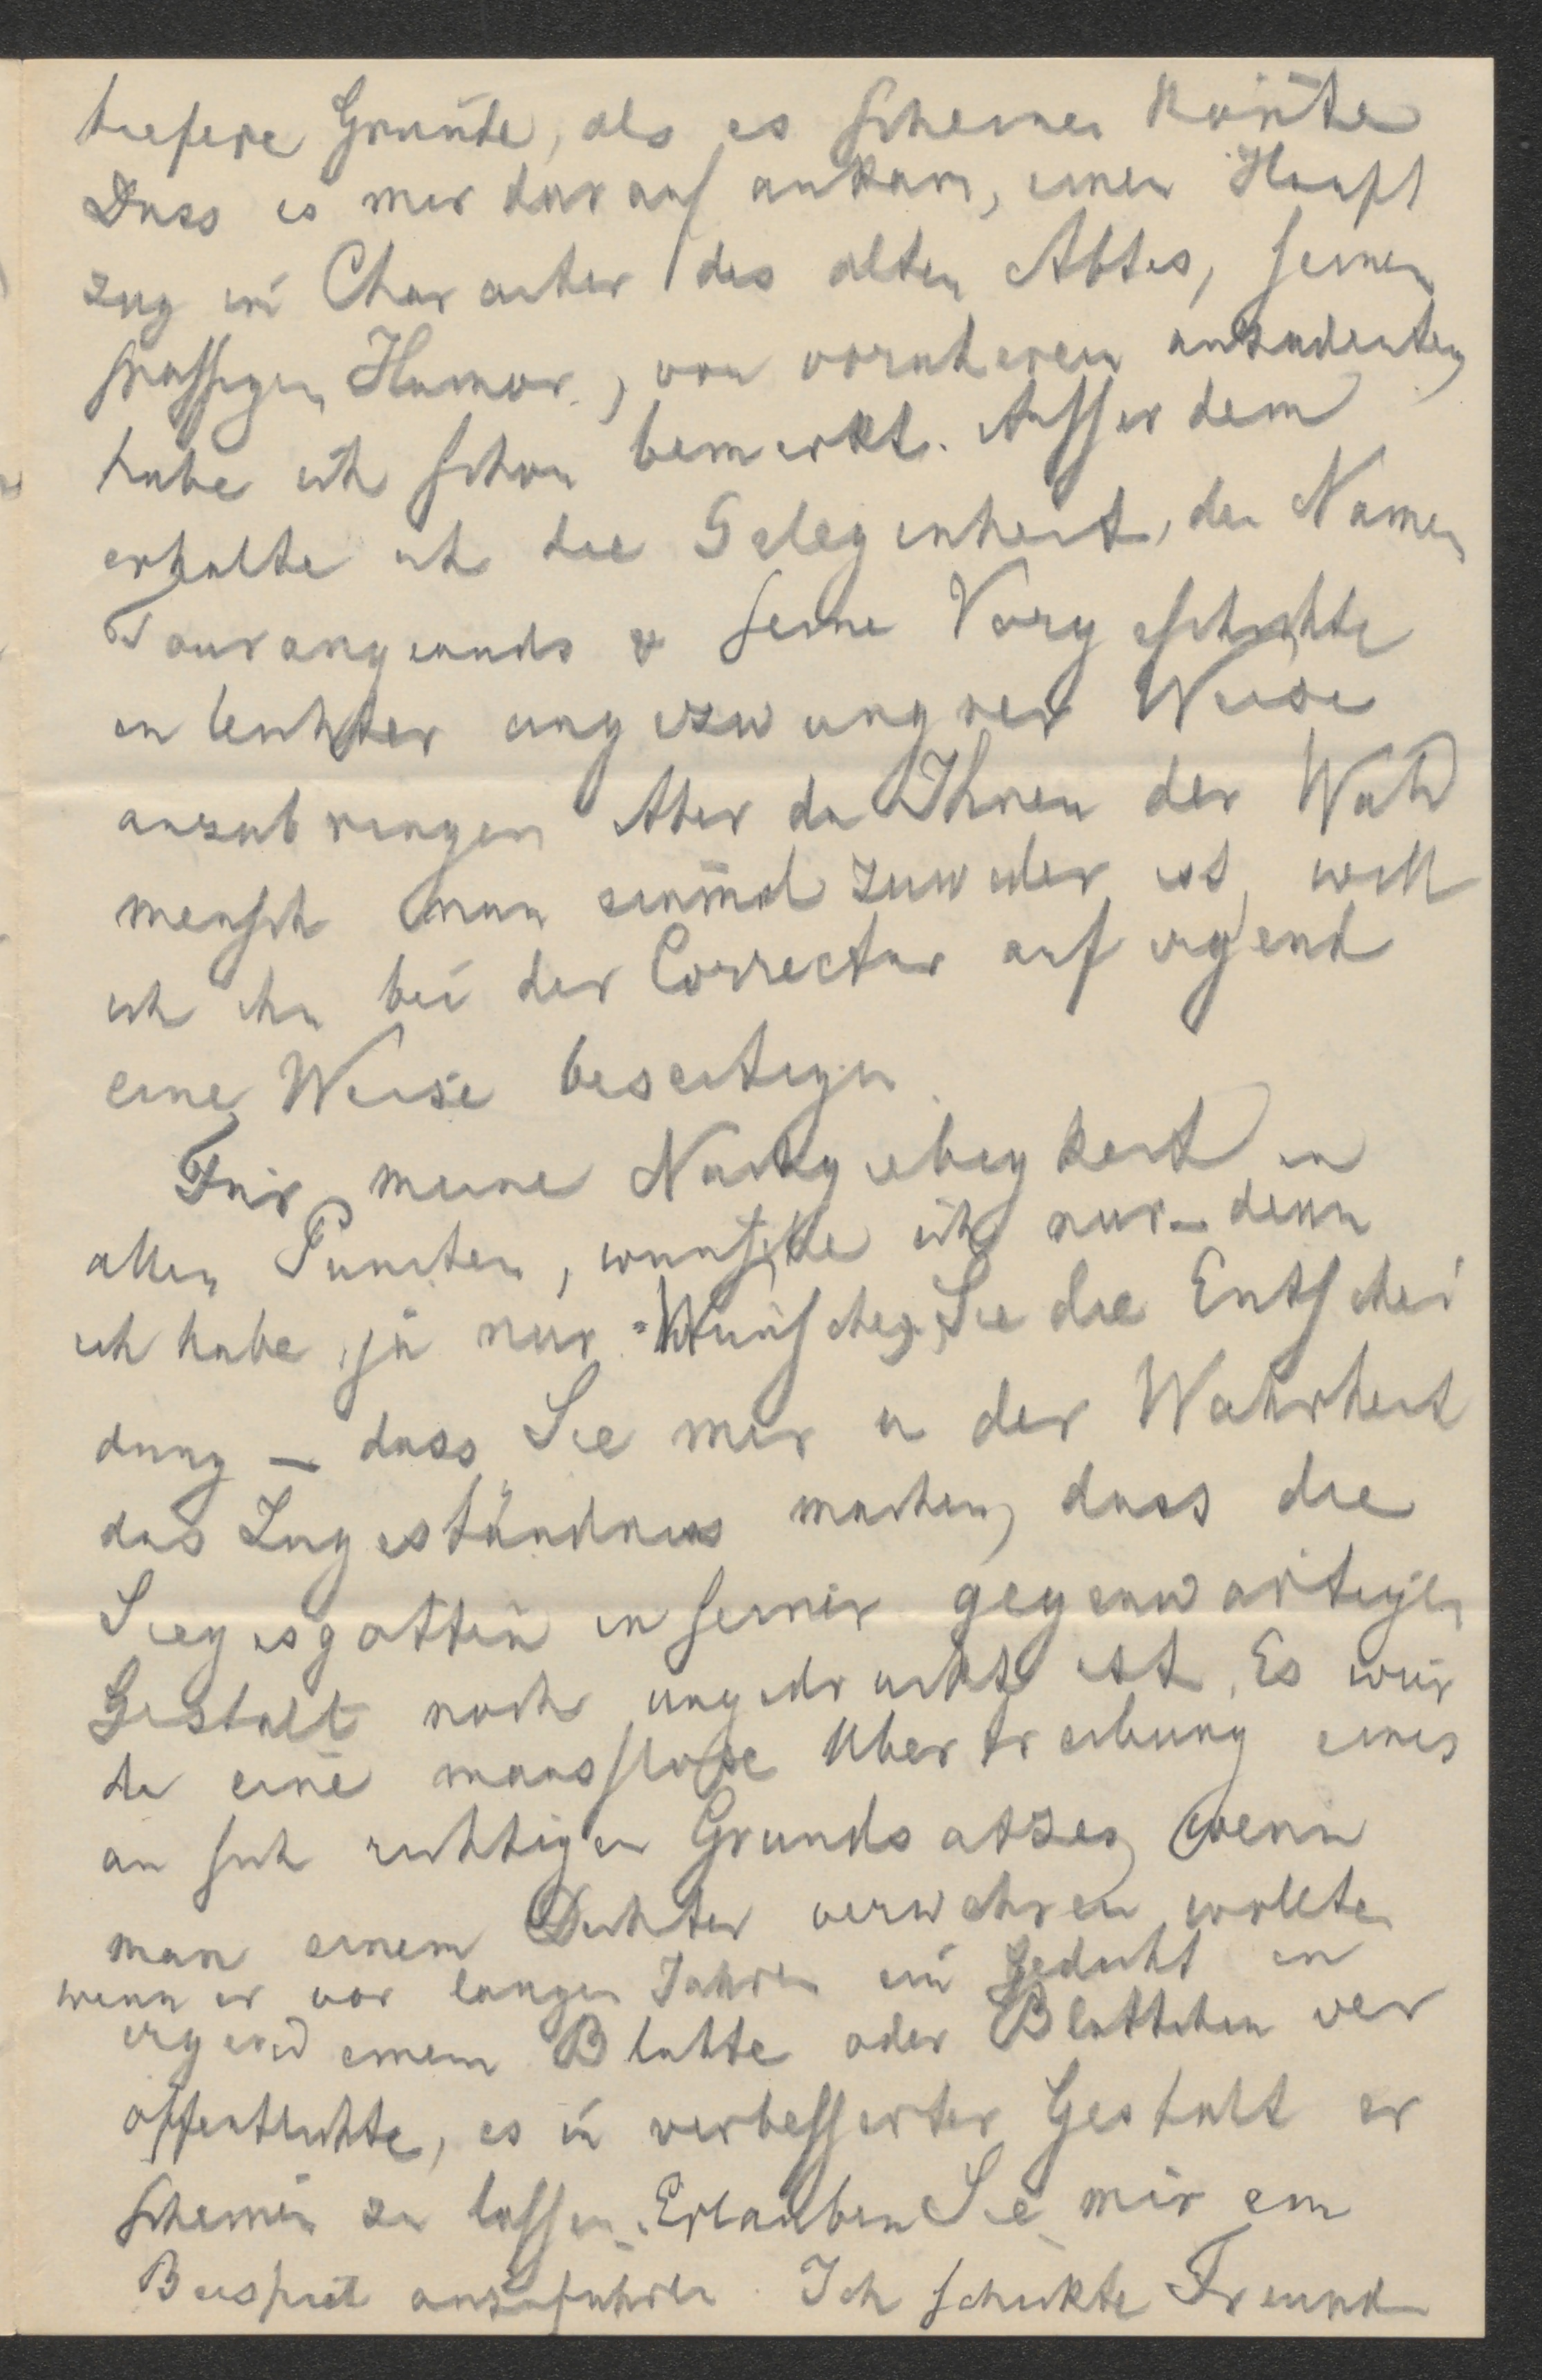 tiefere Gründe, als es scheinen könnte
Dass es mir darauf ankam, einen Haupt
zug im Character des alten Abtes, seinen
spassigen Humor, von vornherein anzudeuten
habe ich schon bemerkt. Ausserdem
erhalte ich die Gelegenheit, den Namen
& seine Vorgeschichte
in leichter ungezwungner Weise
anzubringen Aber da Ihnen der Wald
mensch nun einmal zuwider ist, will
ich ihn bei der Correctur auf irgend
eine Weise beseitigen.
Für meine Nachgiebigkeit in
allen Puncten, wünschte ich nur – denn
ich habe ja nur Wünsche, Sie die Entschei
dung – dass Sie mir in der Wahrheit
das Zugeständniss machen, dass die
Siegesgöttin in seiner gegenwärtigen
Gestalt noch ungedruckt ist. Es wür
de eine maasslose Übertreibung eines
an sich richtigen Grundsatzes, wenn
man einem Dichter verwehren wollte
wenn er vor langen Jahren ein Gedicht in
irgend einem Blatte oder Blättchen ver
öffentlichte, es in verbesserter Gestalt er
scheinen zu lassen. Erlauben Sie mir ein
Beispiel anzuführen. Ich schickte Freund